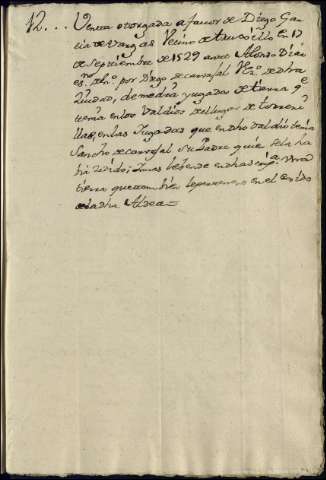 12... Venta otorgada a favor de Diego Gar
cia de Vargas Vecino de truxillo en 17
de Septiembre de 1529 ante Alonso
es.no por Diego de carvajal V.o de dha
Ciudad, de media yugada de tierra q.e
tenia en los Valdios del lugar de torrecí
llas, en las yugadas que en dho valdio tenia
Sancho de carvajal su Padre que se la ha
bía
tierra que tambien le pertenece en el exido
de la dha Aldea =